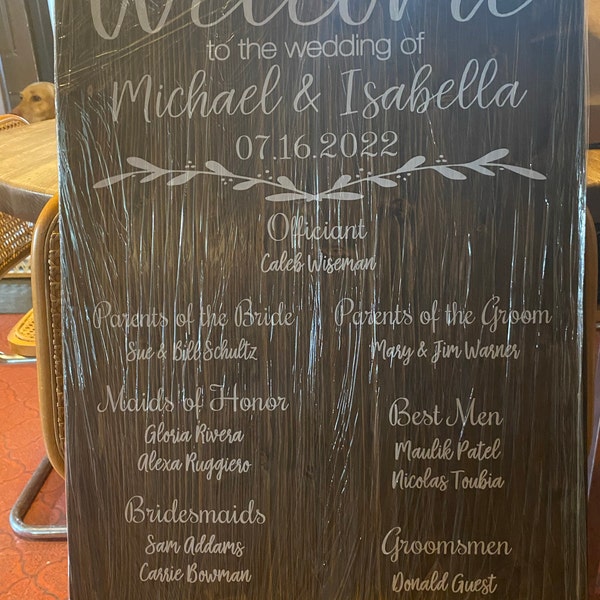 Welcome
to the wedding of
Michael & Isabella
07.16.2022
Officiant
Caleb Wiseman
Parents of the Bride
Sue & Bill Schultz
Parents of the Groom
Mary & Jim Warner
Maids of Honor
Gloria Rivera
Alexa Ruggiero
Best Men
Maulik Patel
Nicolas Toubia
Bridesmaids
Sam Addams
Carrie Bowman
Groomsmen
Donald Guest